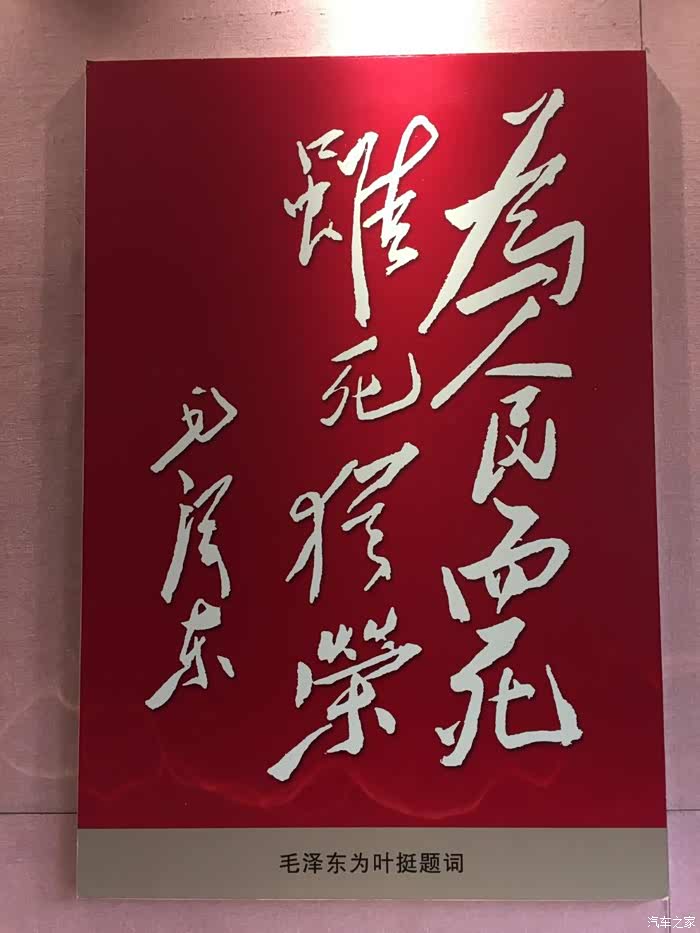 為人民而死
雖死猶榮
毛泽东
毛泽东为叶挺题词
汽车之家